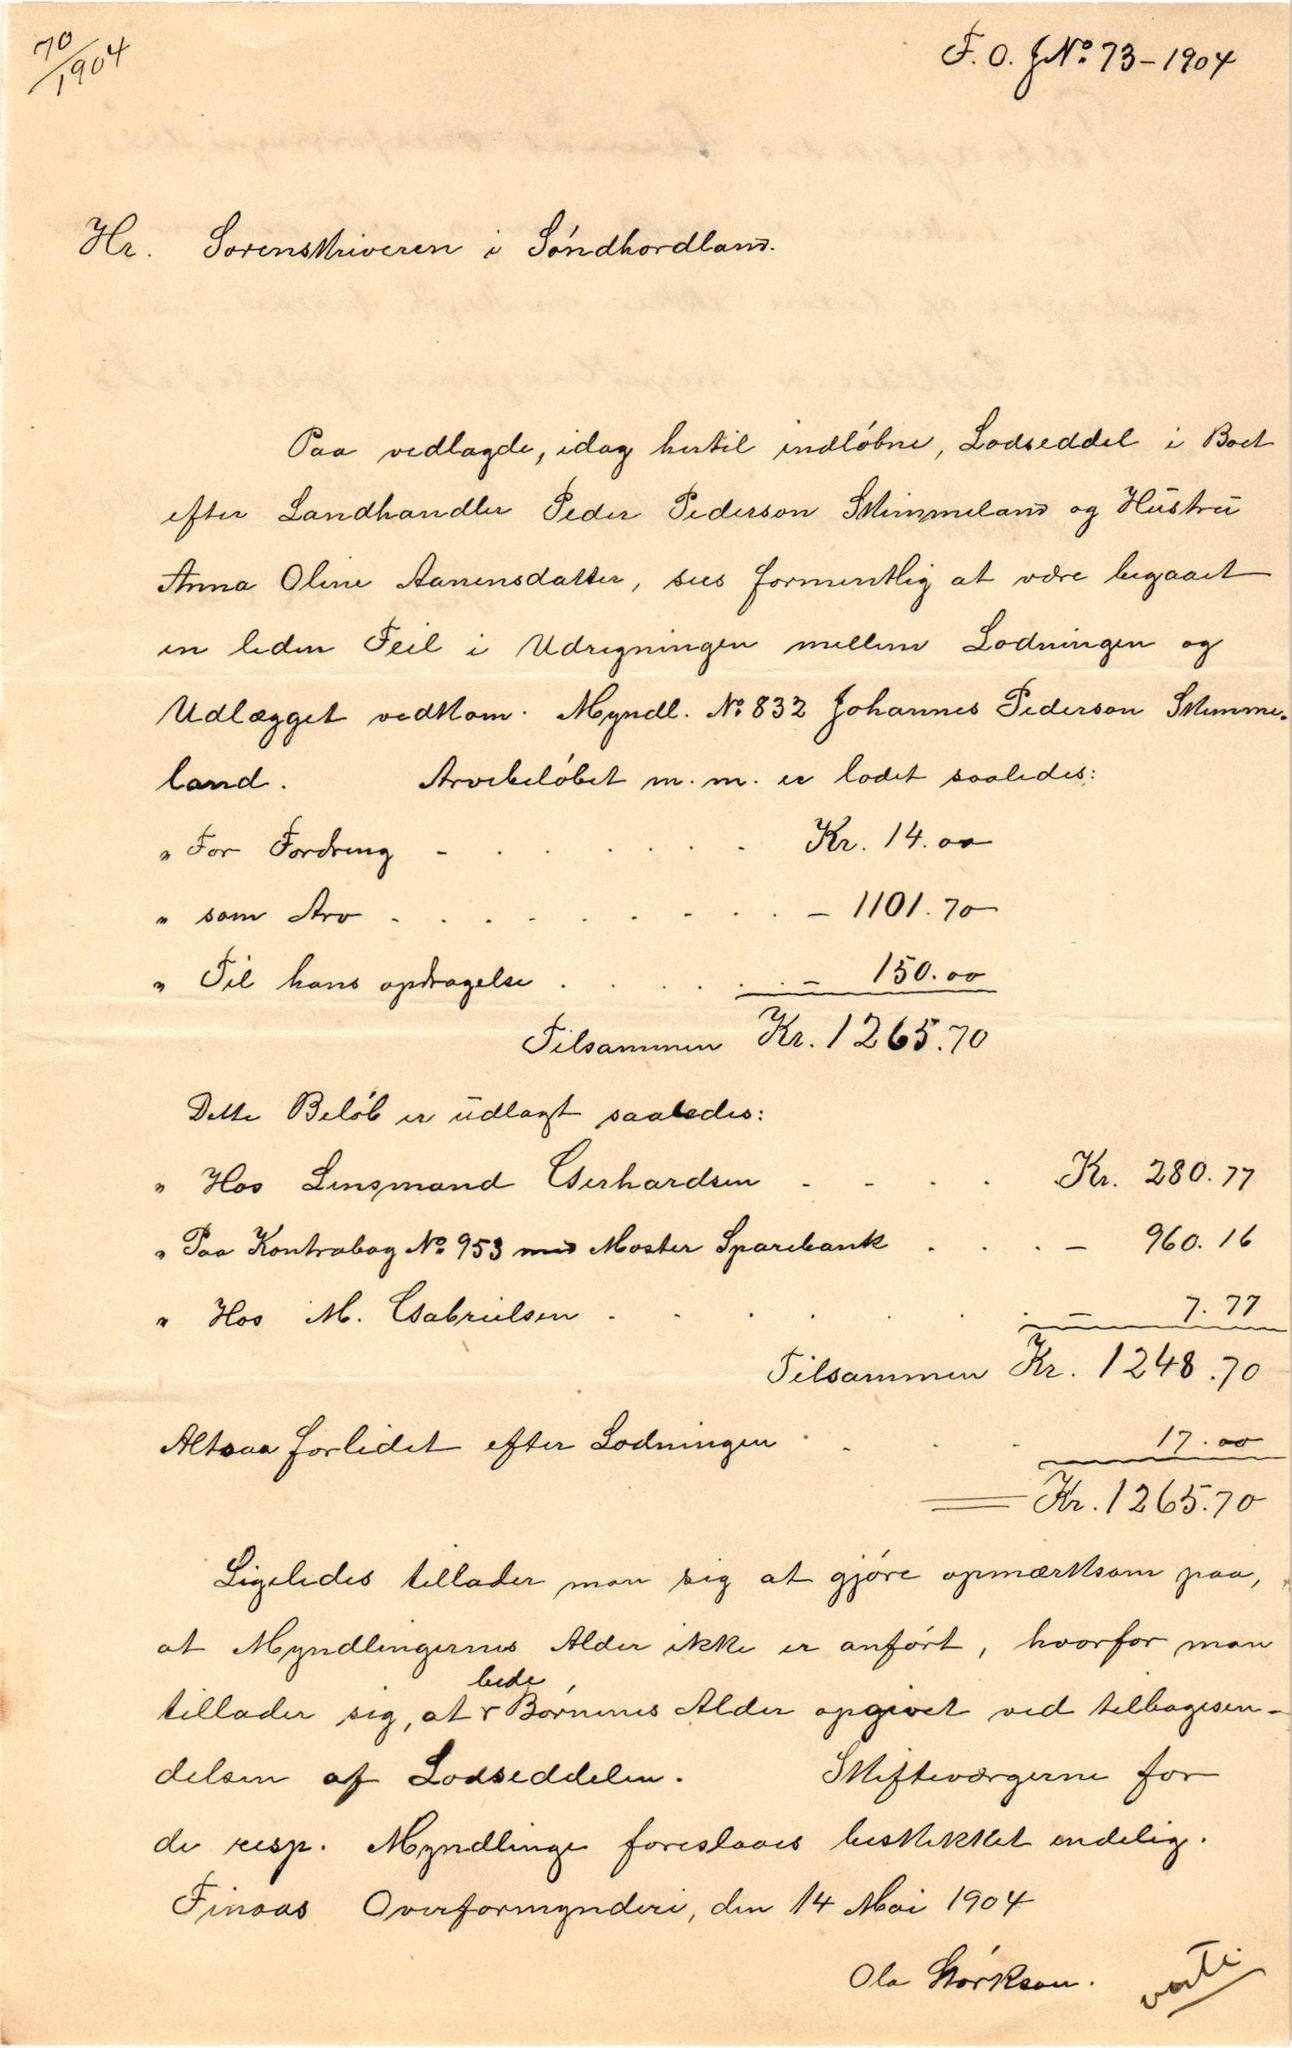 70/1904
F. O. J No. 73 - 1904
Hr. Sorenskriveren i Søndhordland.
Paa vedlagde, idag hertil indløbne, Lodseddel i Boet
efter Landhandler Peder Pederson Skimmeland og Hustru
Anna Oline Aanensdatter, sees formentlig at være begaaet
en liden Feil i Udregningen mellem Lodningen og
Udlægget vedkom. Myndl. No. 832 Johannes Pederson Skimme-
land. Arvebeløbet m. m. er lodet saaledes:
" For Fordring - . . . . . . Kr. 14.00
" som Arv . . . . . . . . . - 1101.70
" Til hans opdragelse . . . . - 150.00
Tilsammen Kr. 1265.70
Dette Beløb er udlagt saaledes:
" Hos Lensmand Gerhardsen - - . . Kr. 280.77
" Paa Kontrabog No. 953 med Moster Sparebank . . . - 960.16
" Hos M. Gabrielsen . . . . . . - 7.77
Tilsammen Kr. 1248.70
Altsaa forlidet efter Lodningen . . . . 17.00
= Kr. 1265.70
Ligeledes tillader man sig at gjøre opmærksom paa,
at Myndlingernes Alder ikke er anført, hvorfor man
bede
tillader sig, at Børnenes Alder opgivet ved tilbagesen-
delsen af Lodseddelen. Skifteværgerne for
de resp. Myndlinge foreslaaes beskikket endelig.
Finaas Overformynderi, den 14 Mai 1904
Ola Størkson.
verte